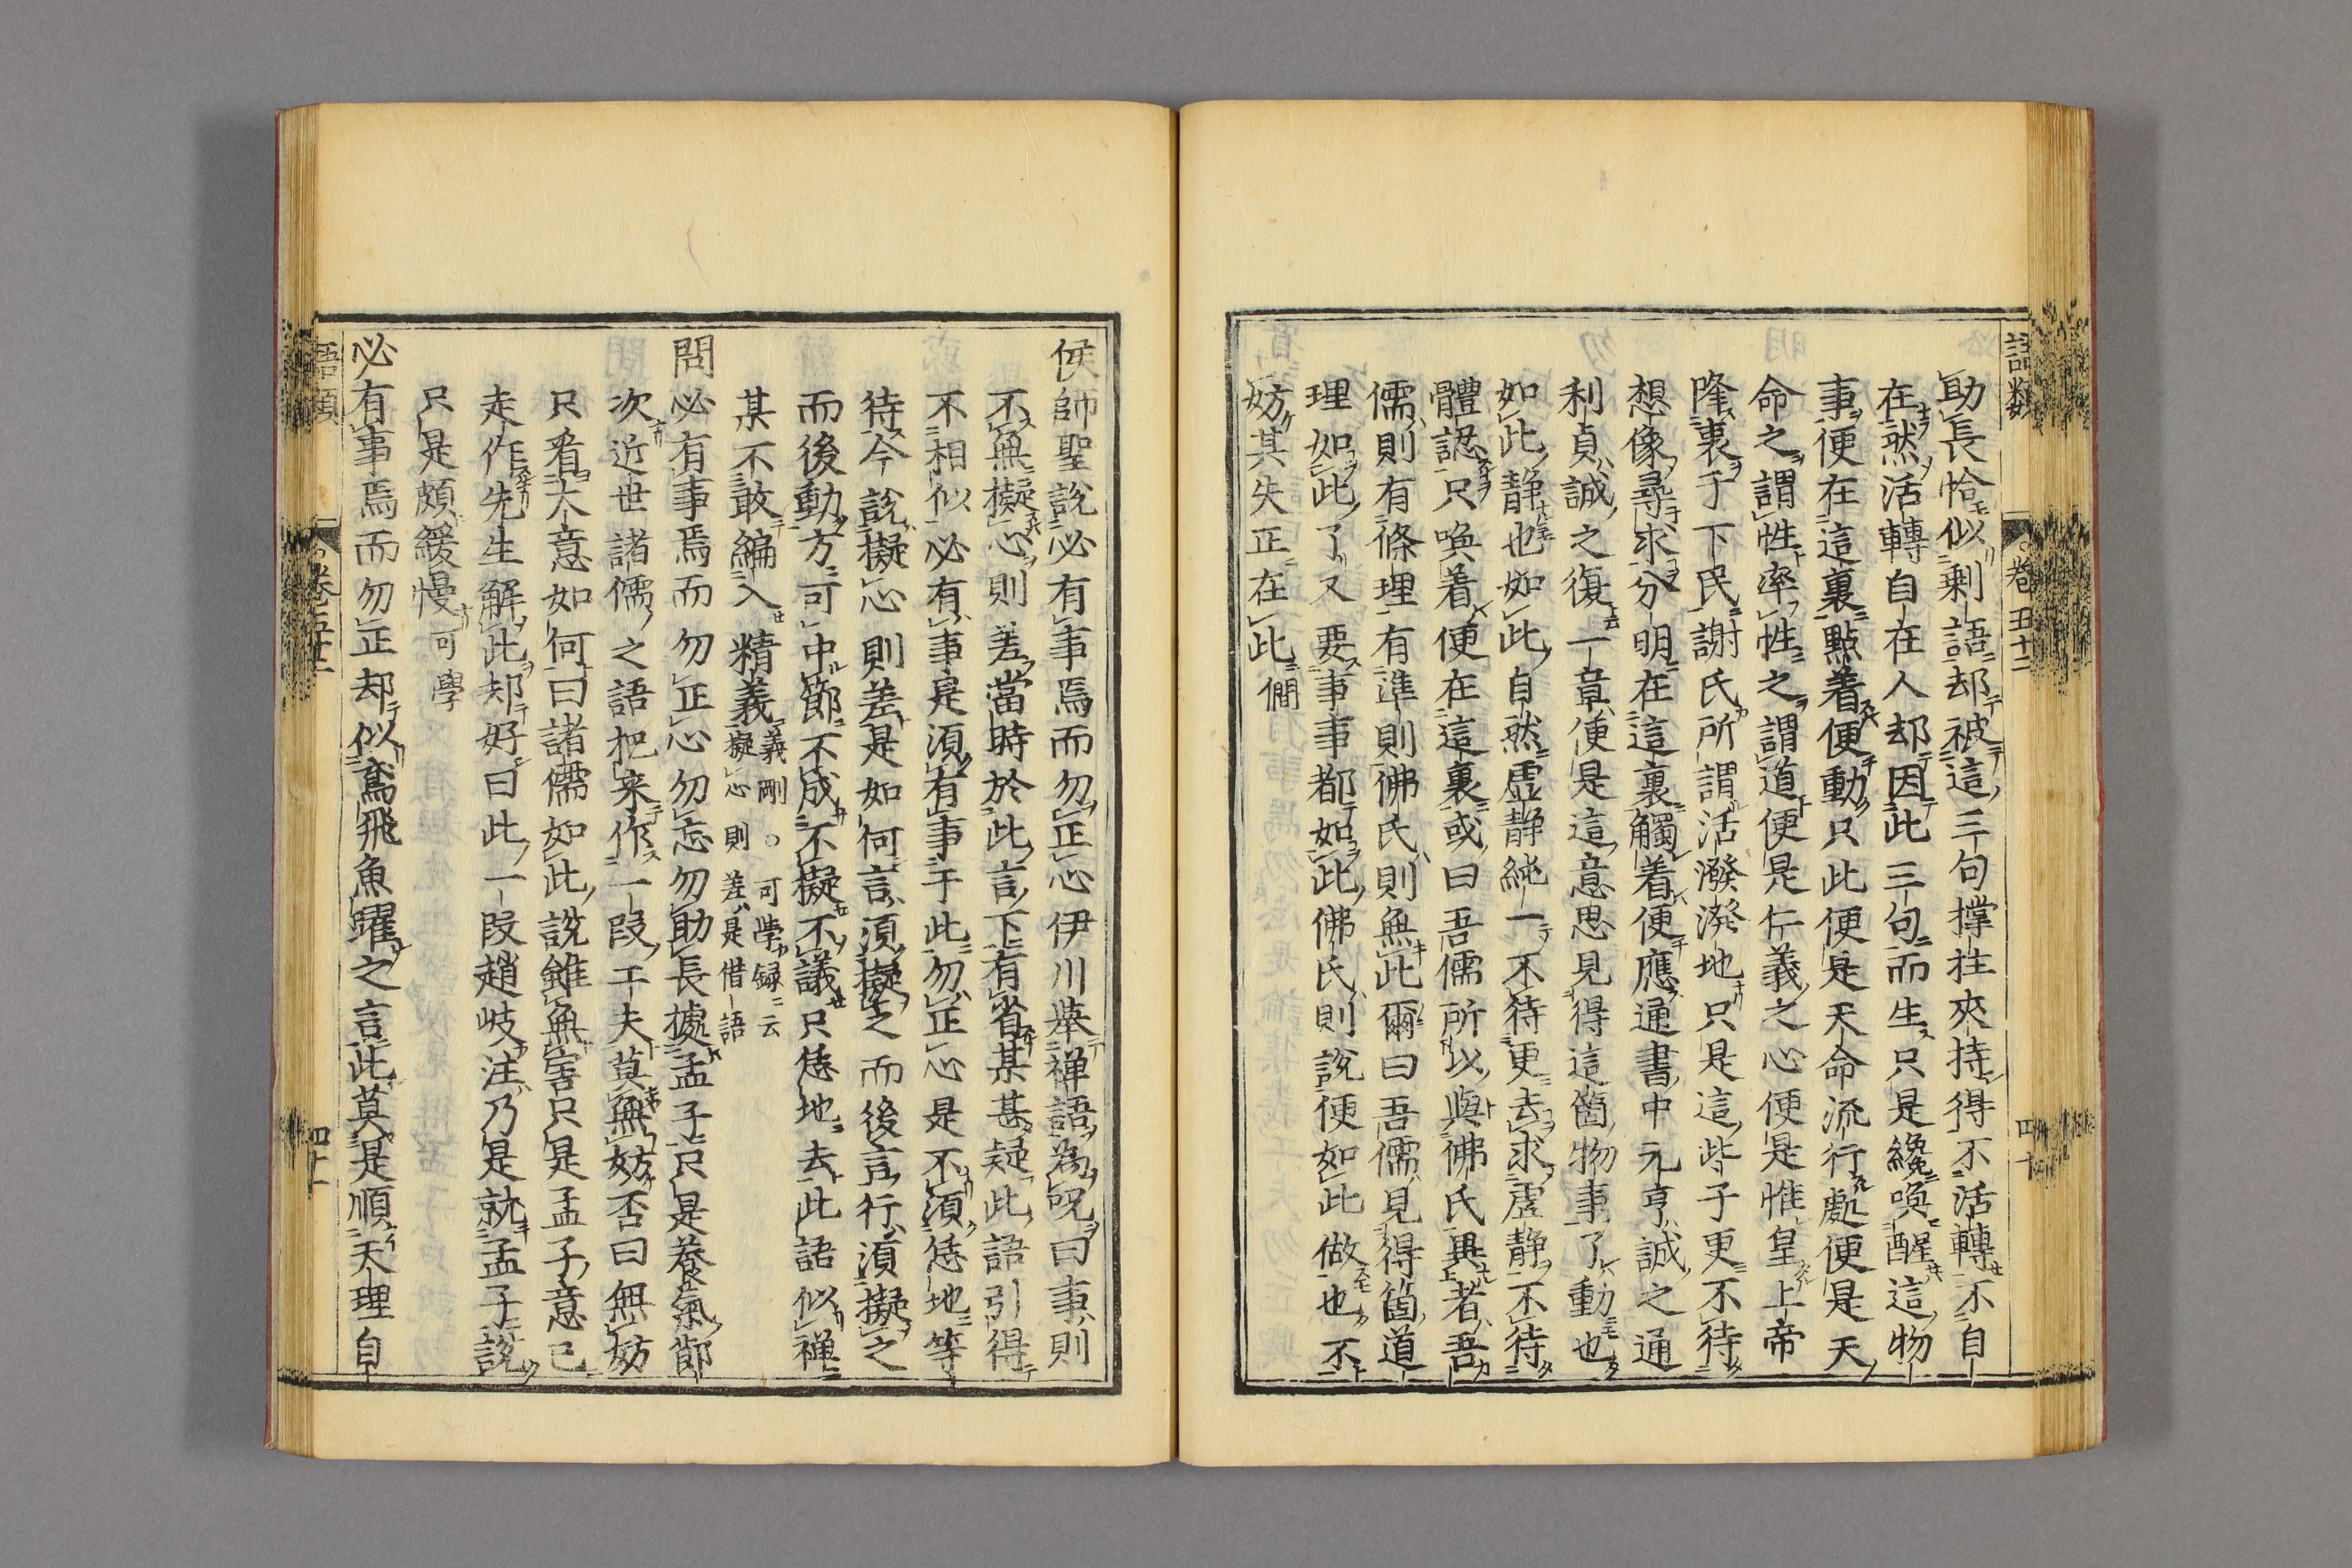 語類　卷五十二　四十
助長恰似剩語却被這三句撑拄夾持得不活轉不自
在然活轉自在人却因此三句而生只是纔喚醒這物
事便在這裏點着便動只此便是天命流行處便是天
命之謂性率性之謂道便是仁義之心便是惟皇上帝
降衷于下民謝氏所謂活潑潑地只是這些子更不待
想像尋求分明在這裏觸着便應通書中元亨誠之通
利貞誠之復一章便是這意思見得這箇物事了動也
如此静也如此自然虚静純一不待更去求虚静不待
體認只喚着便在這裏或曰吾儒所以與佛氏異者吾
儒則有條理有準則佛氏則無此爾曰吾儒見得箇道
理如此了又要事事都如此佛氏則說便如此做也不
妨其失正在此僩
侯師聖說必有事焉而勿正心伊川舉禪語為况曰事則
不無擬心則差當時於此言下有省某甚疑此語引得
不相似必有事是須有事于此勿正心是不須恁地等
待今說擬心則差是如何言須擬之而後言行須擬之
而後動方可中節不成不擬不議只恁地去此語似禪
某不敢編入精義義剛○可學録云擬心則差是借語
問必有事焉而勿正心勿忘勿助長據孟子只是養氣節
次近世諸儒之語把来作一段工夫莫無妨否曰無妨
只看大意如何曰諸儒如此說雖無害只是孟子意已
走作先生解此却好曰此一段趙岐注乃是就孟子說
只是頗緩慢可學
必有事焉而勿正却似鳶飛魚躍之言此莫是順天理自
語類　卷五十二　四十一